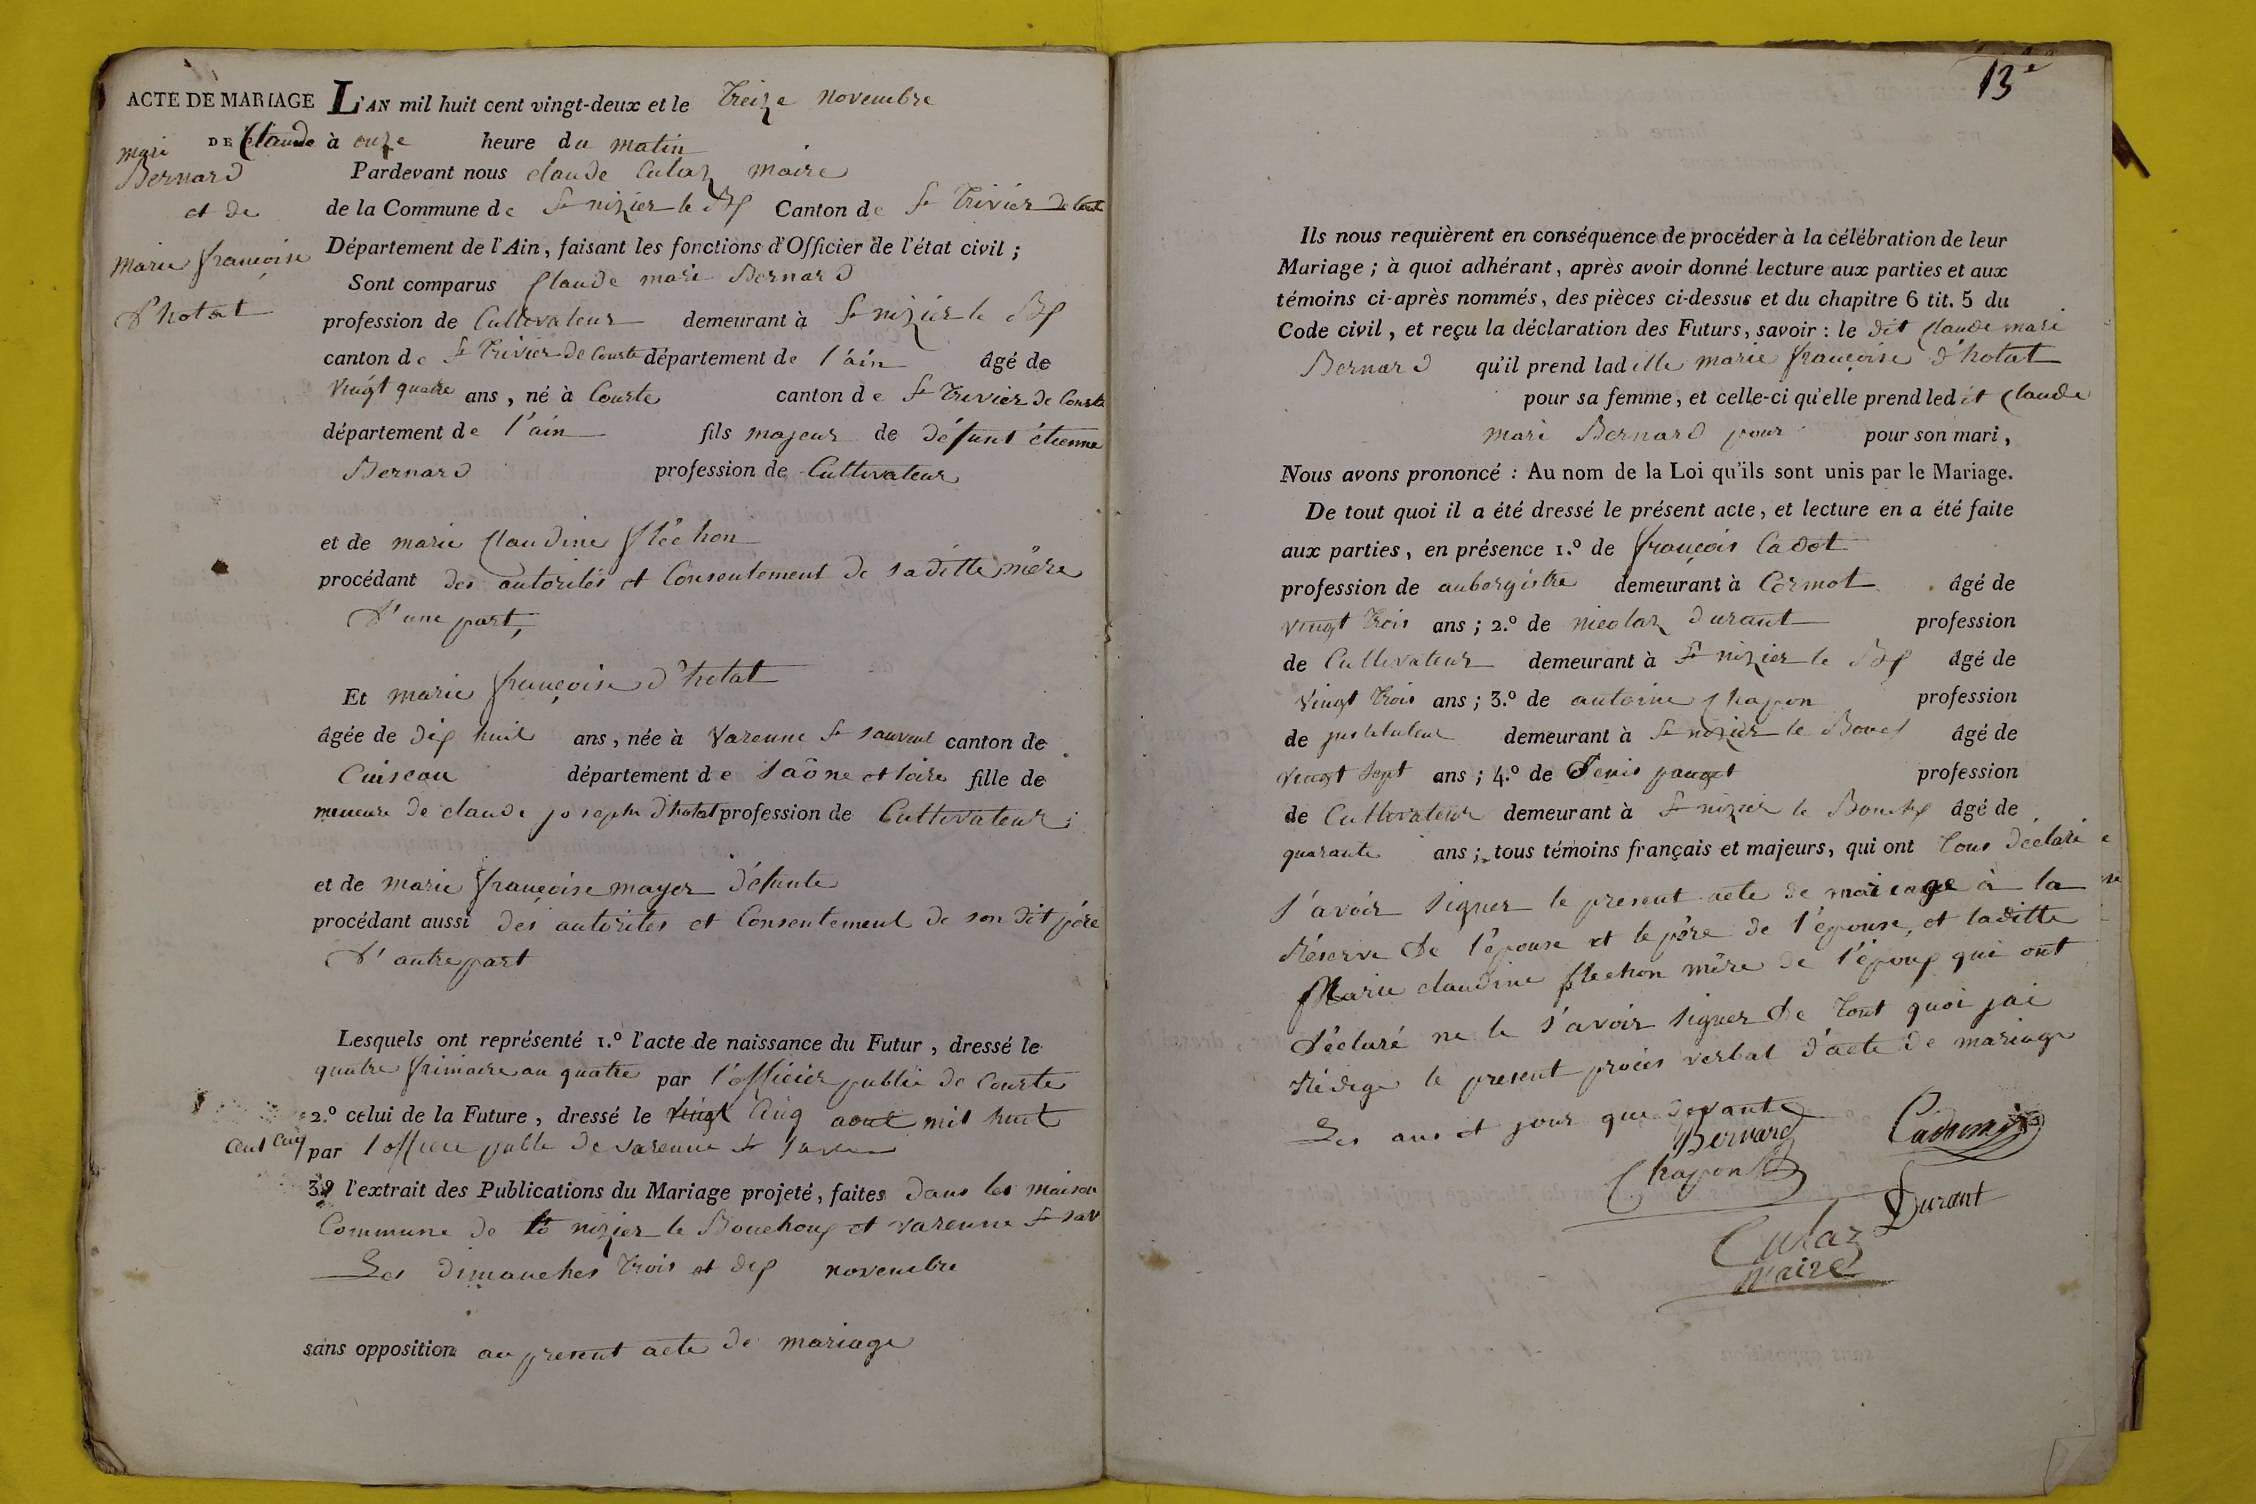 ACTE DE MARIAGE
DE Claude
mari
Bernard
et de
marie françoise
d'hotat
L'AN mil huit cent vingt-deux et le treize novembre
à onze heure du matin
Pardevant nous claude Culaz maire
de la Commune de St nizier le Bx Canton de St Trivier de Courte
Département de l'Ain, faisant les fonctions d'Officier de l'état civil ;
Sont comparus Claude mari Bernard
profession de Cultivateur demeurant à St nizier le Bx
canton de St Trivier de Courte département de l'ain âgé de
vingt quatre ans, né à Courte canton de St Trivier de Courte
département de l'ain fils majeur de défunt étienne
Bernard profession de Cultivateur
et de marie Claudine fléchon
procédant des autorités et Consentement de saditte mère
d'une part,
Et marie françoise d'hotat
âgée de dix huit ans, née à Varenne St sauveur canton de
Cuiseau département de Saône et loire fille de
meneure de claude joseph d'hotat profession de Cultivateur
et de marie françoise mayer défunte
procédant aussi des autorites et Consentement de son dit père
d'autre part
Lesquels ont représenté 1.º l'acte de naissance du Futur, dressé le
quatre frimaire an quatre par l'officier public de Courte
2.º celui de la Future, dressé le vingt cinq aout mil huit
cent cinq par l'officie public de varenne St
3º l'extrait des Publications du Mariage projeté, faites dans les maison
Commune de St nizier le Bouchoux et varenne St sav
Les dimanches trois et dix novembre
sans opposition au present acte de mariage
13e
Ils nous requièrent en conséquence de procéder à la célébration de leur
Mariage ; à quoi adhérant, après avoir donné lecture aux parties et aux
témoins ci-après nommés, des pièces ci-dessus et du chapitre 6 tit. 5 du
Code civil, et reçu la déclaration des Futurs, savoir : le dit Claude mari
Bernard qu'il prend laditte marie françoise d'hotat
pour sa femme, et celle-ci qu'elle prend ledit Claude
mari Bernard pour pour son mari,
Nous avons prononcé : Au nom de la Loi qu'ils sont unis par le Mariage.
De tout quoi il a été dressé le présent acte, et lecture en a été faite
aux parties, en présence 1.º de françois Cadot
profession de aubergistre demeurant à Cormot âgé de
vingt trois ans ; 2.º de nicolaz durant profession
de Cultivateur demeurant à St nizier le Bx âgé de
vingt trois ans ; 3.º de antoine Chapon profession
de jnstituteur demeurant à St nizier le Boux âgé de
vingt sept ans ; 4.º de Denis pauget profession
de Cultivateur demeurant à St nizier le Bouchx âgé de
quarante ans ; tous témoins français et majeurs, qui ont tous déclaré
s'avoir signer le present acte de mariage à la
Réserve de l'épouse et le père de l'épouse, et laditte
Marie claudine flechon mère de l'époux qui ont
déclaré ne le s'avoir signer de tout quoi jai
Rédigé le present procès verbal d'acte de mariage
Les ans et jour que devant
Bernard
Chapon
Durant
Culaz
maire